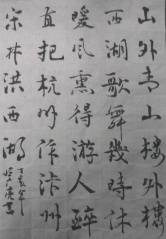 山外青山樓外樓
西湖歌舞幾時休
暖風熏得游人醉
直把杭州作汴州
宋林洪西湖
丁亥年